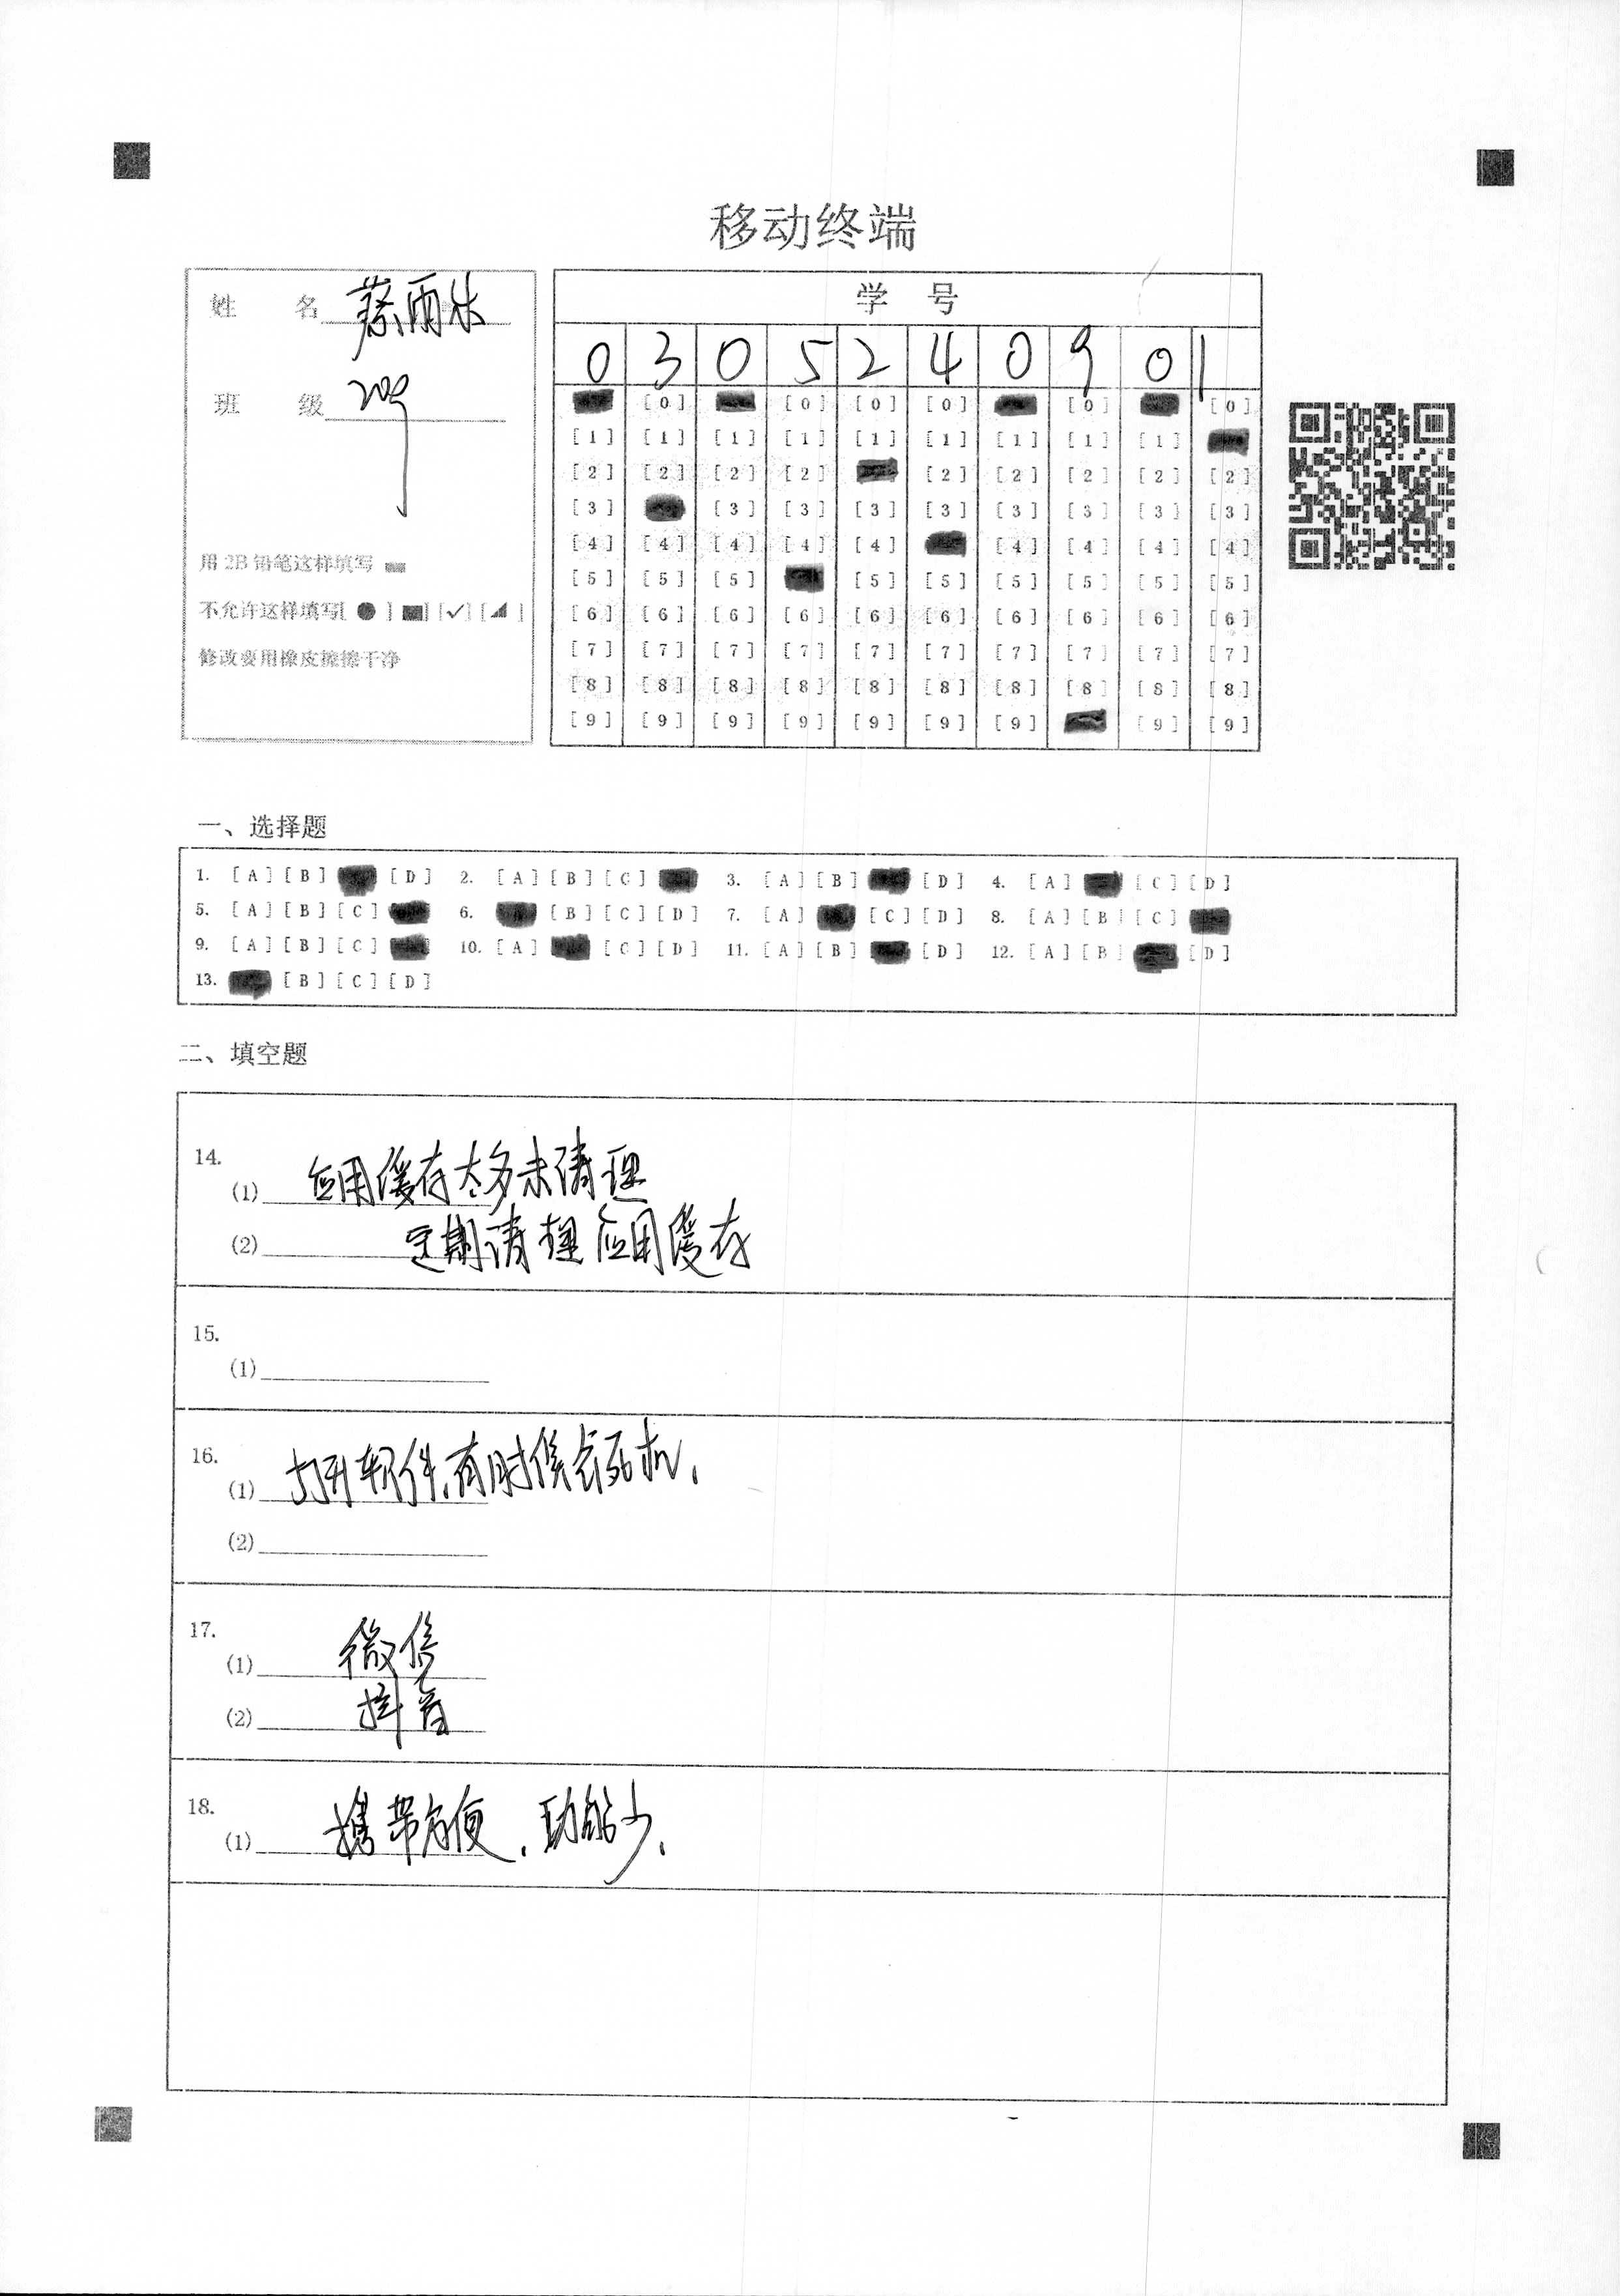 移动终端
姓 名 蔡雨
班 级 2409
用 2B 铅笔这样填写
不允许这样填写[ ● ] [■] [✓] [◢ ]
修改要用橡皮擦擦干净
学 号
0 3 0 5 2 4 0 9 0 1
[0] [0] [0] [0] [0] [0]
[1] [1] [1] [1] [1] [1] [1] [1] [1]
[2] [2] [2] [2] [2] [2] [2] [2] [2]
[3] [3] [3] [3] [3] [3] [3] [3] [3]
[4] [4] [4] [4] [4] [4] [4] [4] [4]
[5] [5] [5] [5] [5] [5] [5] [5] [5]
[6] [6] [6] [6] [6] [6] [6] [6] [6] [6]
[7] [7] [7] [7] [7] [7] [7] [7] [7] [7]
[8] [8] [8] [8] [8] [8] [8] [8] [8] [8]
[9] [9] [9] [9] [9] [9] [9] [9] [9]
一、选择题
1. [A] [B] [D] 2. [A] [B] [C] 3. [A] [B] [D] 4. [A] [C] [D]
5. [A] [B] [C] 6. [B] [C] [D] 7. [A] [C] [D] 8. [A] [B] [C]
9. [A] [B] [C] 10. [A] [C] [D] 11. [A] [B] [D] 12. [A] [B] [D]
13. [B] [C] [D]
二、填空题
14.
(1) 应用缓存太多未清理
(2) 定期清理应用缓存
15.
(1)
16.
(1) 打开软件,有时候会死机.
(2)
17.
(1) 微信
(2) 抖音
18.
(1) 携带方便,功能少.